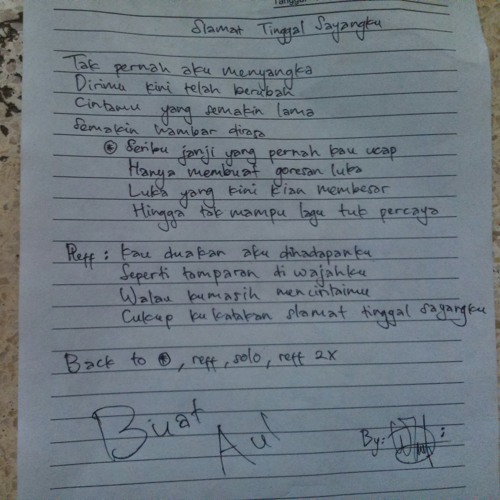 Slamat Tinggal Sayangku
Tak pernah aku menyangka
Dirimu kini telah berubah
Cintamu yang semakin lama
Semakin hambar dirasa
Seribu janji yang pernah kau ucap
Hanya membuat goresan luka
Luka yang kini kian membesar
Hingga tak mampu lagu tuk percaya
Reff : Kau duakan aku dihadapanku
Seperti tamparan di wajahku
Walau kumasih mencintaimu
Cukup ku katakan slamat tinggal sayangku
Back to , reff, solo, reff 2x
Buat
Aul
By: